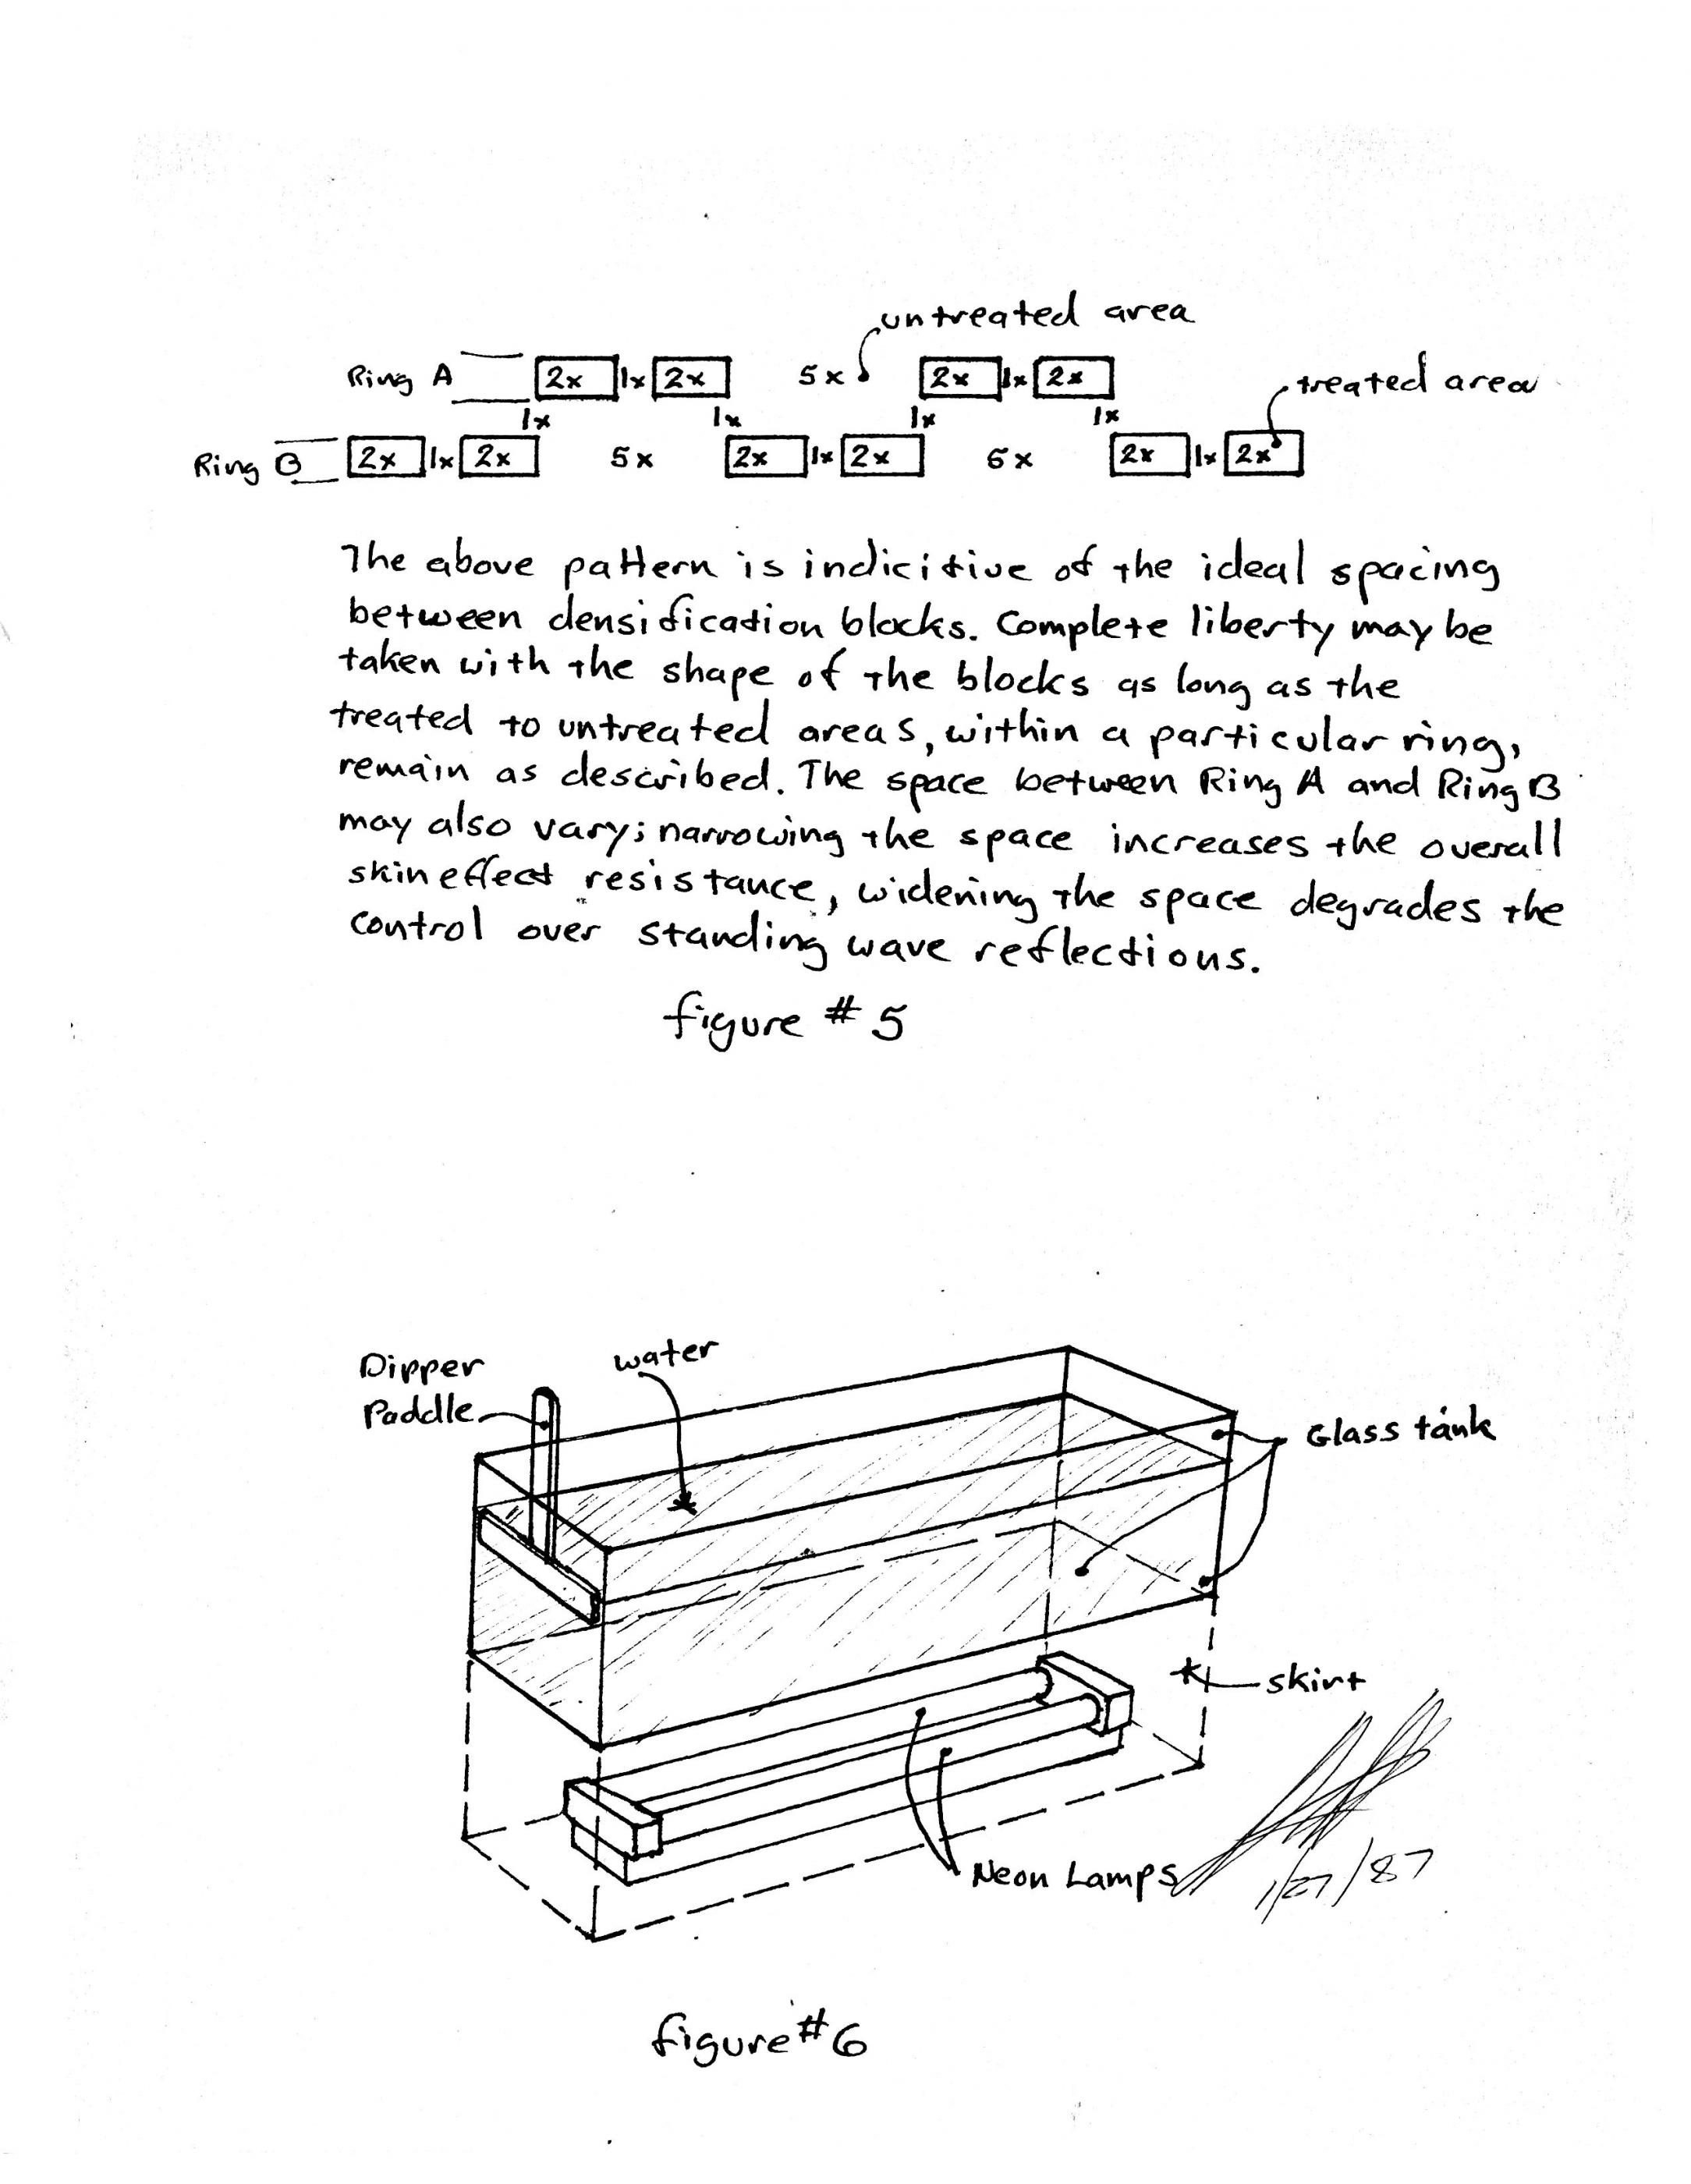 untreated area
Ring A 2x 1x 2x 5x 2x 1x 2x treated area
1x 1x 1x 1x
Ring B 2x 1x 2x 5x 2x 1x 2x 5x 2x 1x 2x
The above pattern is indicitive of the ideal spacing
between densification blocks. Complete liberty may be
taken with the shape of the blocks as long as the
treated to untreated areas, within a particular ring,
remain as described. The space between Ring A and Ring B
may also vary; narrowing the space increases the overall
skin effect resistance, widening the space degrades the
control over standing wave reflections.
figure # 5
Dipper
Paddle
water
Glass tank
skirt
Neon Lamps
1/27/87
figure #6